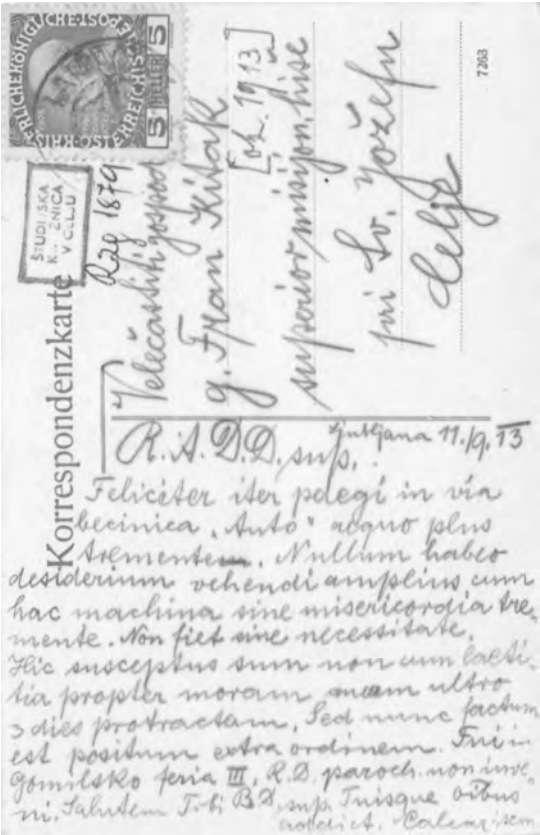 KAISERLICHE KÖNIGLICHE ÖSTERREICHISCHE POST
5 HELLER 5
ŠTUDIJSKA
KNJIŽNICA
V CELJU
Korrespondenzkarte
Velečastiti gospod
g. Fran Kitak
[ok. 1913]
superior misijon. hiše
pri Sv. Jožefu
Celje
7263
R. A. D. D. sup.
Ljubljana 11./9. 13
Feliciter iter peregi in via
"Auto" aequo plus
tremente. Nullum habeo
desiderium vehendi amplius cum
hac machina sine misericordia tre-
mente. Non fiet sine necessitate.
Hic susceptus sum non cum laeti-
tia propter moram meam ultro
3 dies protractam. Sed nunc factum
est positum extra ordinem. Fui in
Gomilsko feria III. R. D. paroch. non inve-
ni. Salutem Tibi B. D. sup. Tuisque oibus
addict.